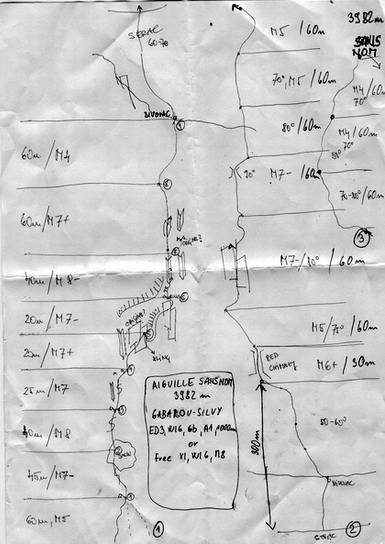 SERAC
60-70
BIVOUAC
60m/M4
60m/M7+
40m/M8-
20m/M7-
20m/M7+
25m/M7
40m/M8
45m/M7-
60m, M5
SNOW
1
AIGUILLE SANS NOM
3982 m
GABAROU-SILVY
ED3, WI6, 6b, A1, 1000m
or
free XI, WI6, M8
M5/60m
70°, M5/60m
80°/60m
M7-/60m
90°
M7-/80°/60m
M5/70°/60m
RED
CHIMNEY
M6+/30m
300m
80-60°
BIVOUAC
SERAC
2
3982m
SANS
NOM
M4/60m
70°
M4/60m
70°
70-80°/60m
3